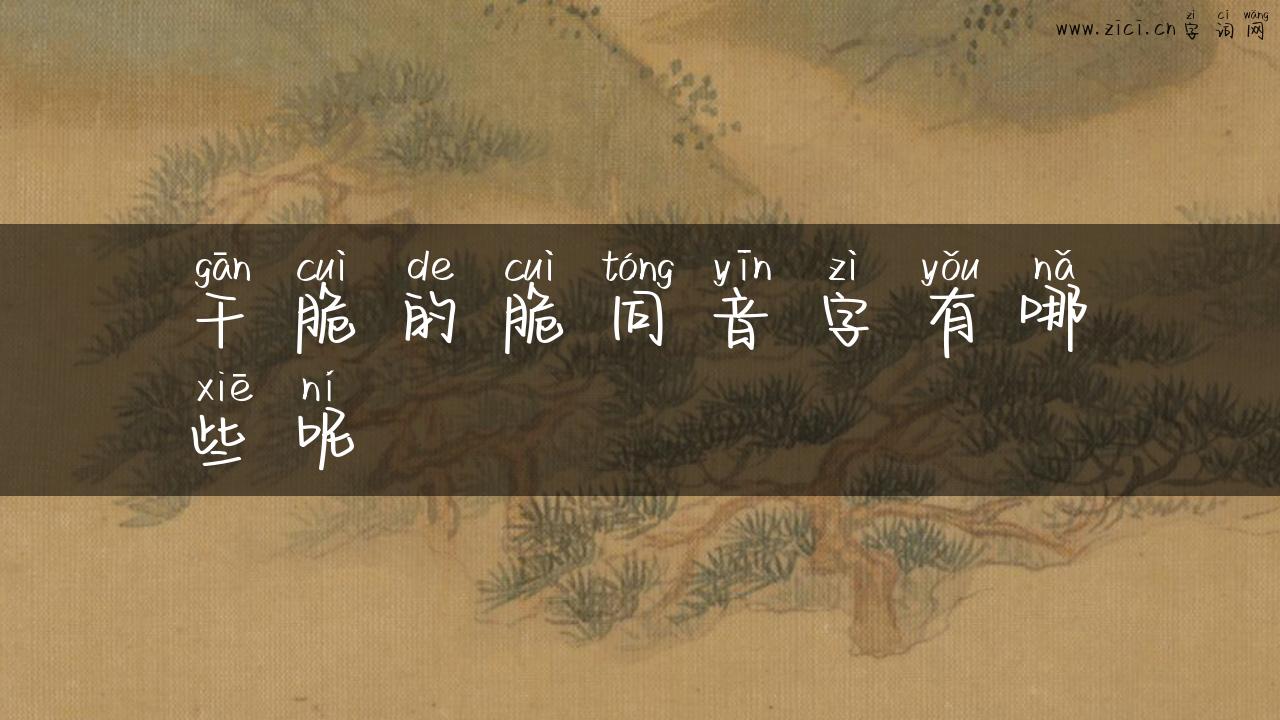 zì cí wǎng
www.zici.cn 字词网
gān cuì de cuì tóng yīn zì yǒu nǎ
干脆的脆同音字有哪
xiē ní
些呢